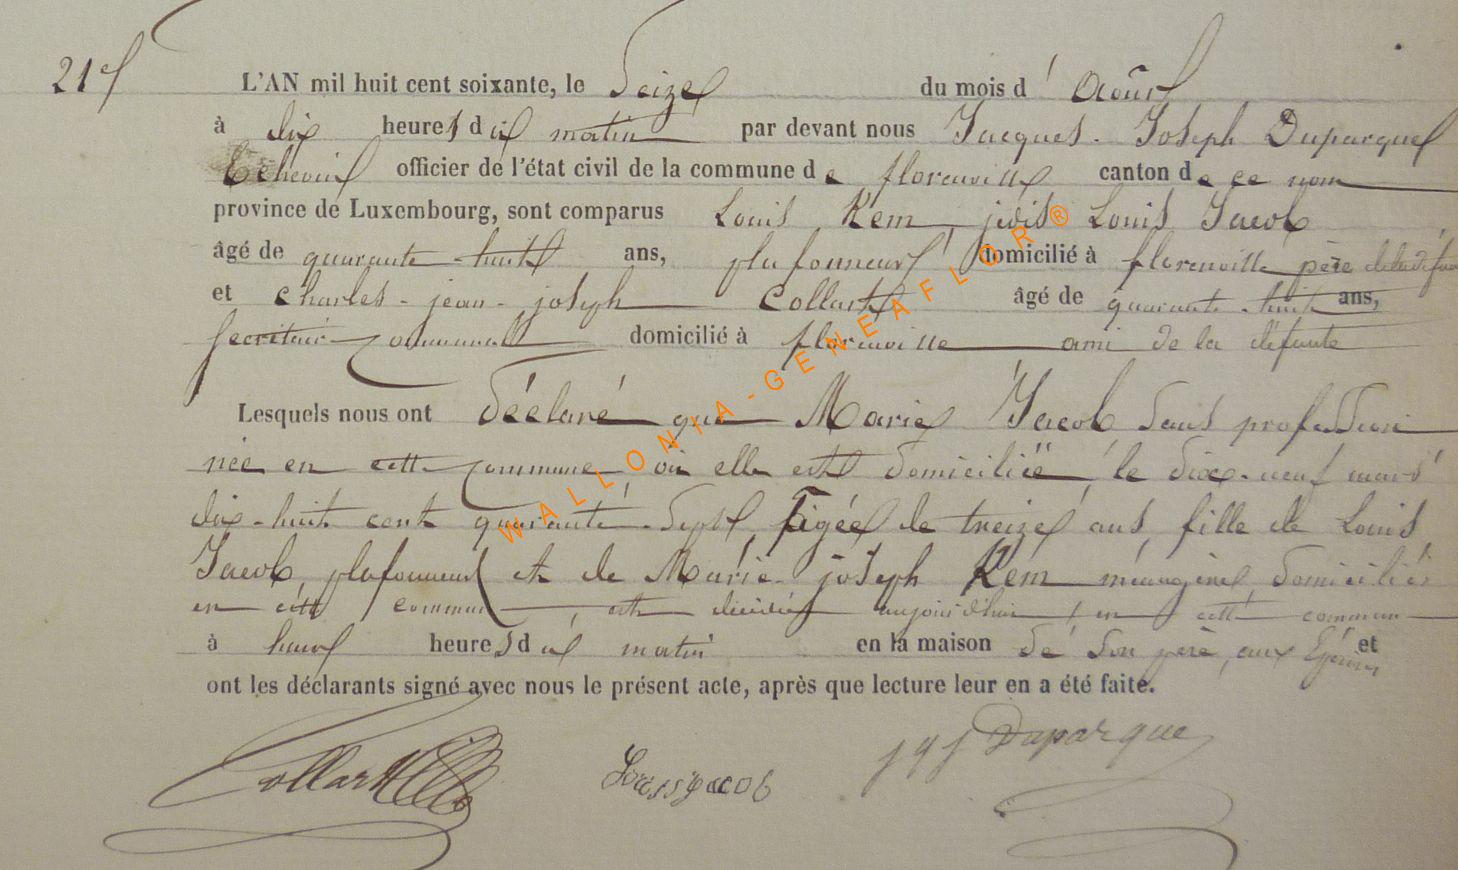 21e
L'AN mil huit cent soixante, le Seize du mois d'Août
à dix heures du matin par devant nous Jacques-Joseph Duparque
Echevin officier de l'état civil de la commune de florenville canton de ce nom
province de Luxembourg, sont comparus Louis Kem, jadis Louis Jacob
âgé de quarante-huit ans, plafonneur, domicilié à florenville père de la défunte
et Charles-jean-joseph Collart âgé de quarante-huit ans,
Secrétaire Communal domicilié à florenville ami de la défunte
Lesquels nous ont déclaré que Marie Jacob Sans profession
née en cette commune, où elle est domiciliée, le dix-neuf mars
dix-huit cent quarante-Sept, agée de treize ans, fille de Louis
Jacob, plafonneur et de Marie-joseph Kem ménagère, domiciliés
en cette commune, est décédée aujourd'hui, en cette commune
à heures du matin en la maison de Son père, aux Epioux et
ont les déclarants signé avec nous le présent acte, après que lecture leur en a été faite.
Collart Louis Jacob JqJ Duparque
WALLONIA-GENEAFLOR®